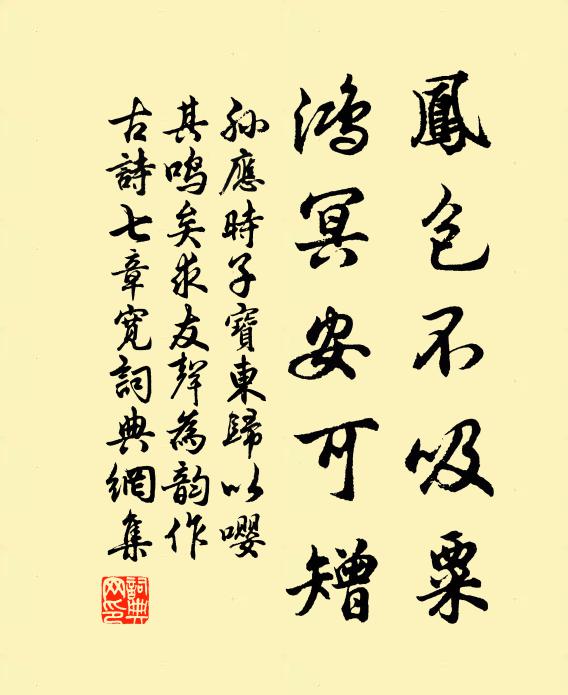 鳳色不吸粟
鴻冥安可矰
孫應時子寶東歸以嚶
其鳴矣求友聲為韵作
古詩七章寬詞典網集